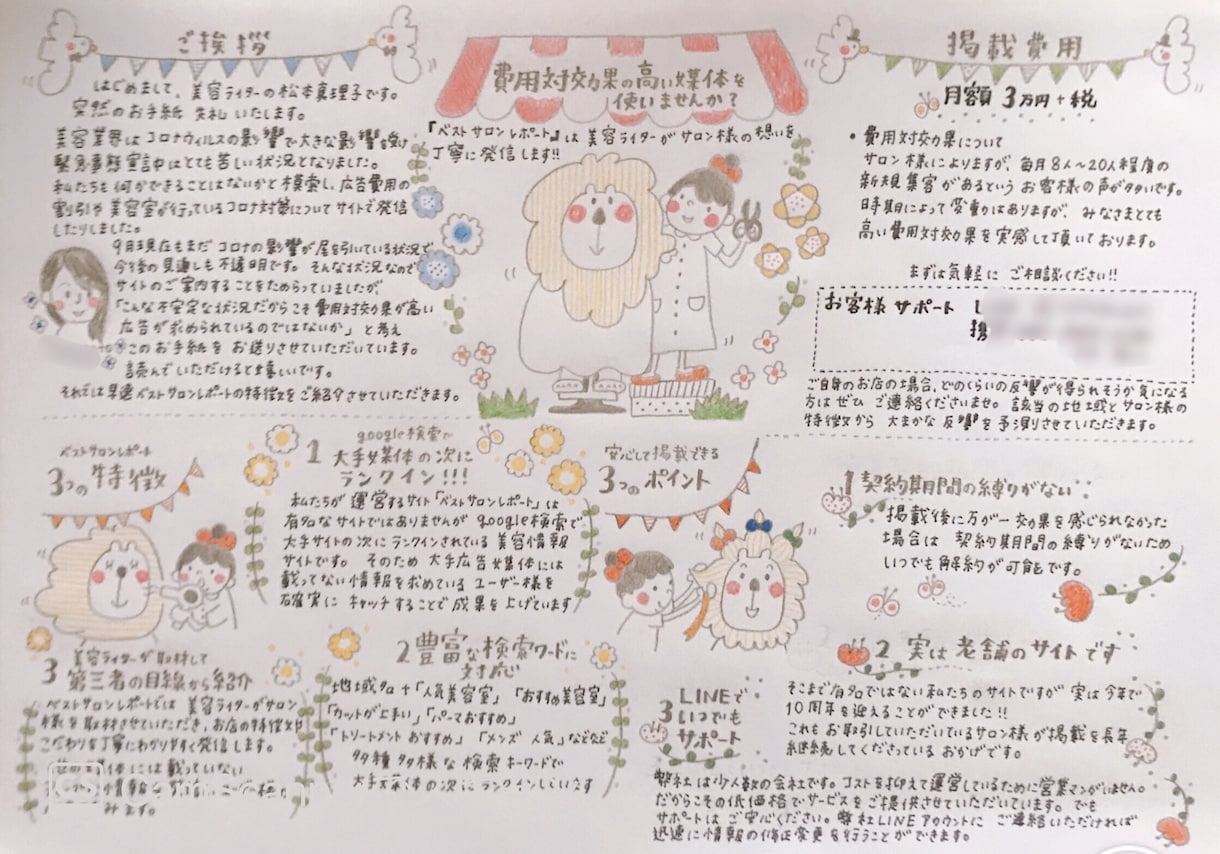 ご挨拶
はじめまして、美容ライターの松本真理子です。
突然のお手紙 失礼いたします。
美容業界はコロナウィルスの影響で大きな影響を受け
緊急事態宣言中はとても苦しい状況となりました。
私たちも何かできることはないかと模索し、広告費用の
割引や美容室が行っているコロナ対策についてサイトで発信
したりしました。
9月現在もまだコロナの影響が尾を引いている状況で
今後の見通しも不透明です。そんな状況なので
サイトのご案内することをためらっていましたが
「こんな不安定な状況だからこそ費用対効果が高い
広告が求められているのではないか」と考え
このお手紙をお送りさせていただいています。
読んでいただけると嬉しいです。
それでは早速ベストサロンレポートの特徴をご紹介させていただきます。
費用対効果の高い媒体を
使いませんか?
『ベストサロンレポート』は美容ライターがサロン様の想いを
丁寧に発信します!!
掲載費用
月額 3万円+税
・費用対効果について
サロン様によりますが、毎月8人〜20人程度の
新規集客があるというお客様の声が多いです。
時期によって変動はありますが、みなさまとても
高い費用対効果を実感して頂いております。
まずは気軽に ご相談ください!!
お客様 サポート L
携
ご自身のお店の場合、どのくらいの反響が得られそうか気になる
方はぜひ ご連絡くださいませ。該当の地域とサロン様の
特徴から 大まかな 反響を予測させていただきます。
ベストサロンレポート
3つの特徴
1 google検索で
大手媒体の次に
ランクイン!!!
私たちが 運営するサイト「ベストサロンレポート」は
有名なサイトではありませんが google検索で
大手サイトの次にランクインされている美容情報
サイトです。そのため大手広告媒体には
載ってない情報を求めているユーザー様を
確実に キャッチすることで成果を上げています
2 豊富な検索ワードに
対応
地域名+「人気美容室」「おすすめ美容室」
「カットが上手い」「パーマおすすめ」
「トリートメントおすすめ」「メンズ 人気」などなど
多種多様な検索キーワードで
大手媒体の次にランクインしています
3 美容ライターが取材して
第三者の目線から紹介
ベストサロンレポートでは 美容ライターがサロン
様を取材させていただき、お店の特徴や
こだわりを丁寧にわかりやすく発信します。
体には載っていない
情報を
みます。
安心して掲載できる
3つのポイント
1 契約期間の縛りがない
掲載後に万が一効果を感じられなかった
場合は 契約期間の縛りがないため
いつでも解約が可能です。
2 実は老舗のサイトです
そこまで有名ではない私たちのサイトですが 実は今年で
10周年を迎えることができました!!
これもお取引していただいているサロン様が掲載を長年
継続してくださっている おかげです。
3 LINEで
いつでも
サポート
弊社は少人数の会社です。コストを抑えて運営しているために営業マンがいません。
だからこその低価格でサービスをご提供させていただいています。でも
サポートは ご安心ください。弊社LINEアカウントに ご連絡いただければ
迅速に情報の修正変更を行うことができます。